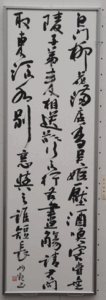 白門柳花滿店香吳姬壓酒喚客嘗金
陵子弟來相送欲行不行各盡觴請君問
取東流水別意與之誰短長